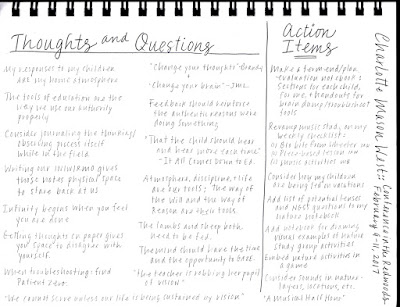 Thoughts and Questions
My responses to my children
are my home atmosphere
The tools of education are the
way we use our authority
properly
Consider journaling the thinking/
observing process itself
while in the field
Writing our
gives
those notes physical space
to stare back at us
Infinity begins when you feel
you are alone
Getting thoughts on paper gives
you space to disagree with
yourself.
When troubleshooting: find
Patient Zero.
"We cannot serve unless our life is being sustained by vision"
"Change your thoughts" -Brandy
"Change your brain" -Jen.
Feedback should reinforce
the authentic reasons we're
doing something
"That the child should hear
and hear more each time"
-It All Comes Down to Ed.
Atmosphere, discipline, + life
are her tools; The way of
the will and the way of
Reason are their tools.
The lambs and sheep both
need to be fed.
The mind should have the time
and the opportunity to deal.
"The teacher is robbing her pupil
of vision"
Action
Items
Make a term-end/plan
evaluation
Sections for each child,
for me + handouts for
brain dump/troubleshoot
tools
Revamp music study on my
weekly checklist:
Consider how my children
are being fed on vacations
Add list of potential lenses
and NGSS questions to my
nature notebook
Add
for drawing
visual examples of nature
study group activities
Embed nature activities in
a game
Consider sounds in nature-
layers, locations, etc.
"A Musical Half Hour"
Charlotte Mason West:: Conference in the Redwoods
February 9-11, 2017